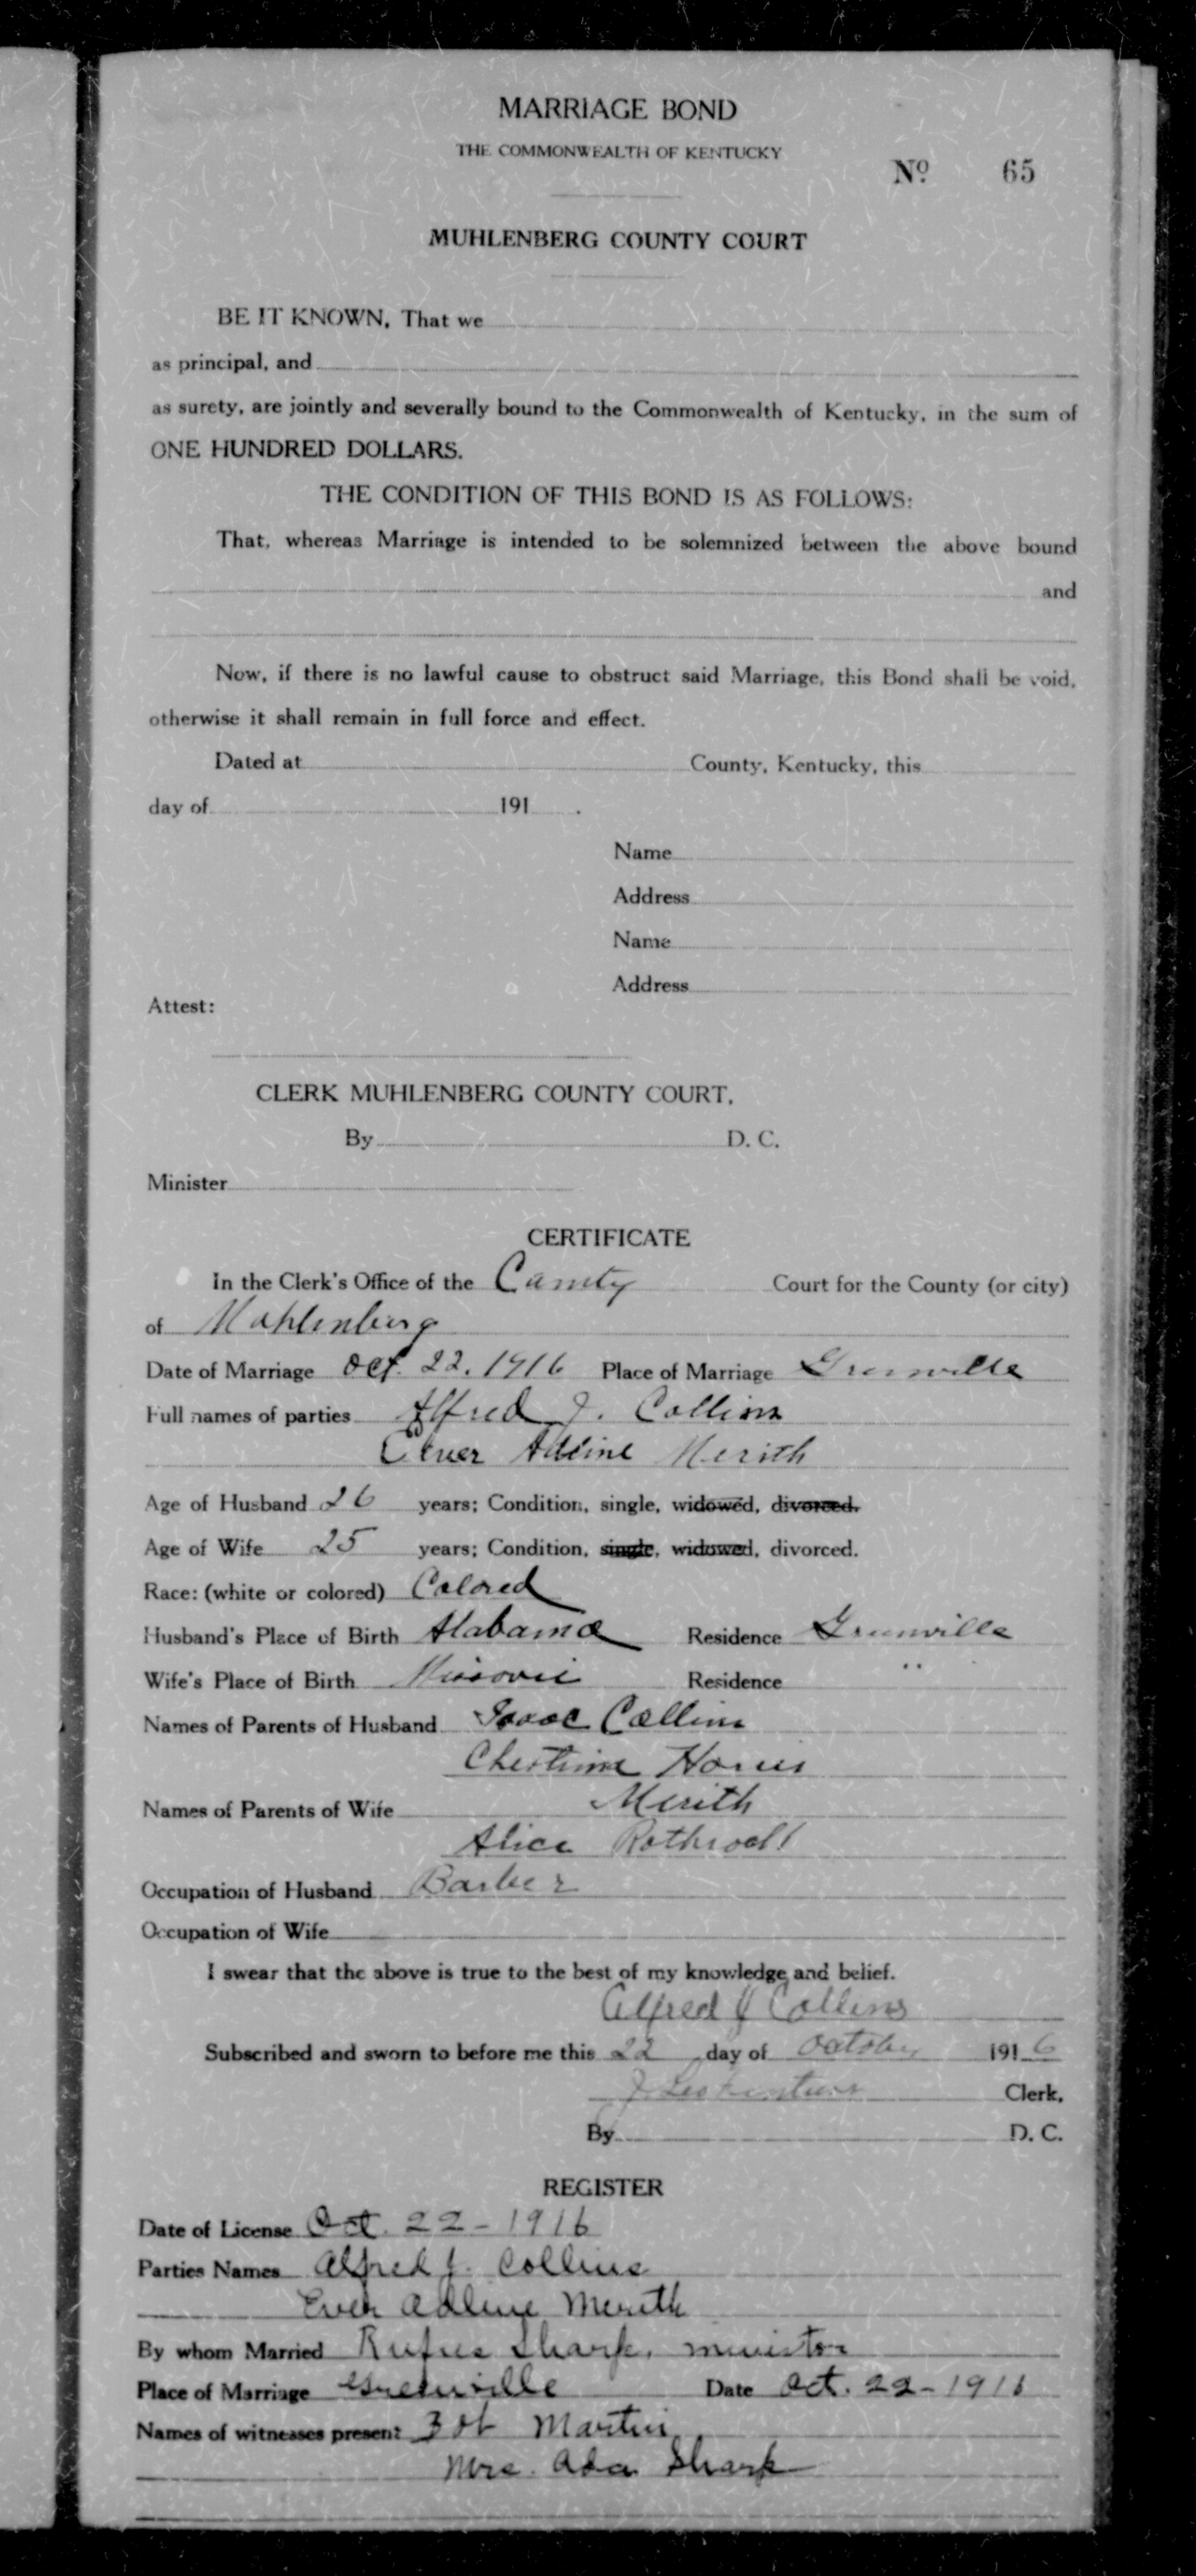 MARRIAGE BOND
THE COMMONWEALTH OF KENTUCKY
Nº 65
MUHLENBERG COUNTY COURT
BE IT KNOWN, That we
as principal, and
as surety, are jointly and severally bound to the Commonwealth of Kentucky, in the sum of
ONE HUNDRED DOLLARS.
THE CONDITION OF THIS BOND IS AS FOLLOWS:
That, whereas Marriage is intended to be solemnized between the above bound
and
Now, if there is no lawful cause to obstruct said Marriage, this Bond shall be void,
otherwise it shall remain in full force and effect.
Dated at County, Kentucky, this
day of 191 .
Name
Address
Name
Address
Attest:
CLERK MUHLENBERG COUNTY COURT.
By D. C.
Minister
CERTIFICATE
In the Clerk's Office of the County Court for the County (or city)
of Muhlenburg
Date of Marriage Oct. 22. 1916 Place of Marriage Greenville
Full names of parties Alfred J. Collins
Adline Merith
Age of Husband 26 years; Condition, single, widowed, divorced.
Age of Wife 25 years; Condition, single, widowed, divorced.
Race: (white or colored) Colored
Husband's Place of Birth Alabama Residence Greenville
Wife's Place of Birth Missouri Residence "
Names of Parents of Husband Isaac Collins
Harris
Names of Parents of Wife Merith
Alice
Occupation of Husband Barber
Occupation of Wife
I swear that the above is true to the best of my knowledge and belief.
Alfred J Collins
Subscribed and sworn to before me this 22 day of October 1916
Clerk,
By D. C.
REGISTER
Date of License Oct. 22-1916
Parties Names Alfred J. Collins
Ever Adline Merith
By whom Married Rufus Shark, minister
Place of Marriage Greenville Date Oct. 22-1916
Names of witnesses present Martin
Mrs. Ada Shark